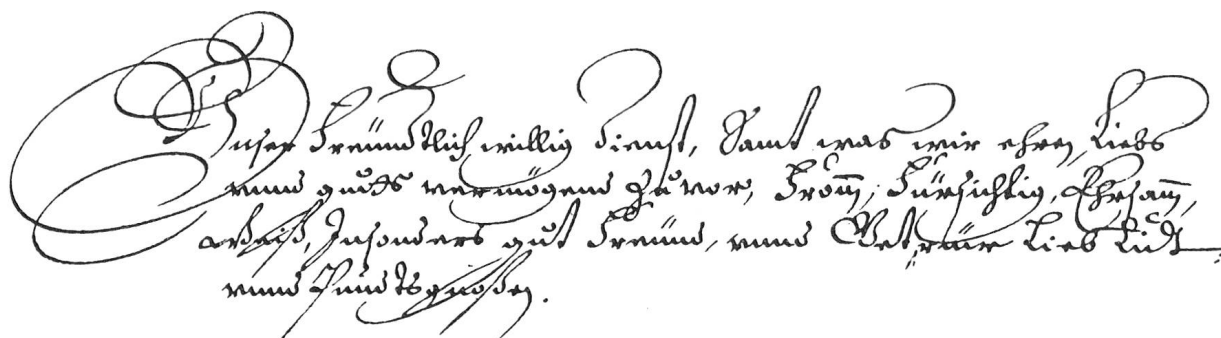 Unser Freündtlich willig dienst, Samt was wir ehren, Liebs
unnd gutts vermögend Zuvor, Fromm, Fürsichtig, Ehrsamm,
Weiß, Insonders gut Freünd, unnd Getreüw Lieb Eidt
unnd Pundtsgnoßen.